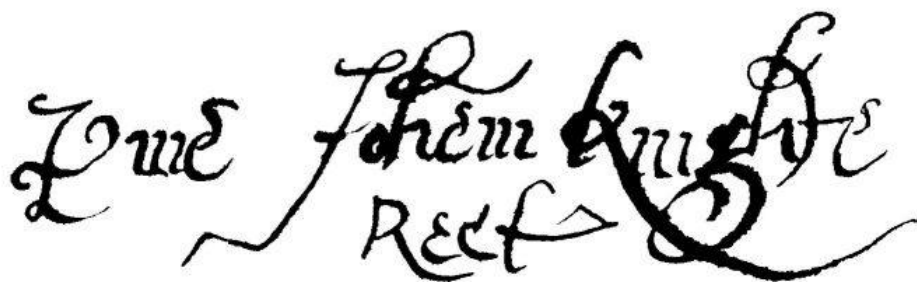 Pme Johem Knighte
Rect